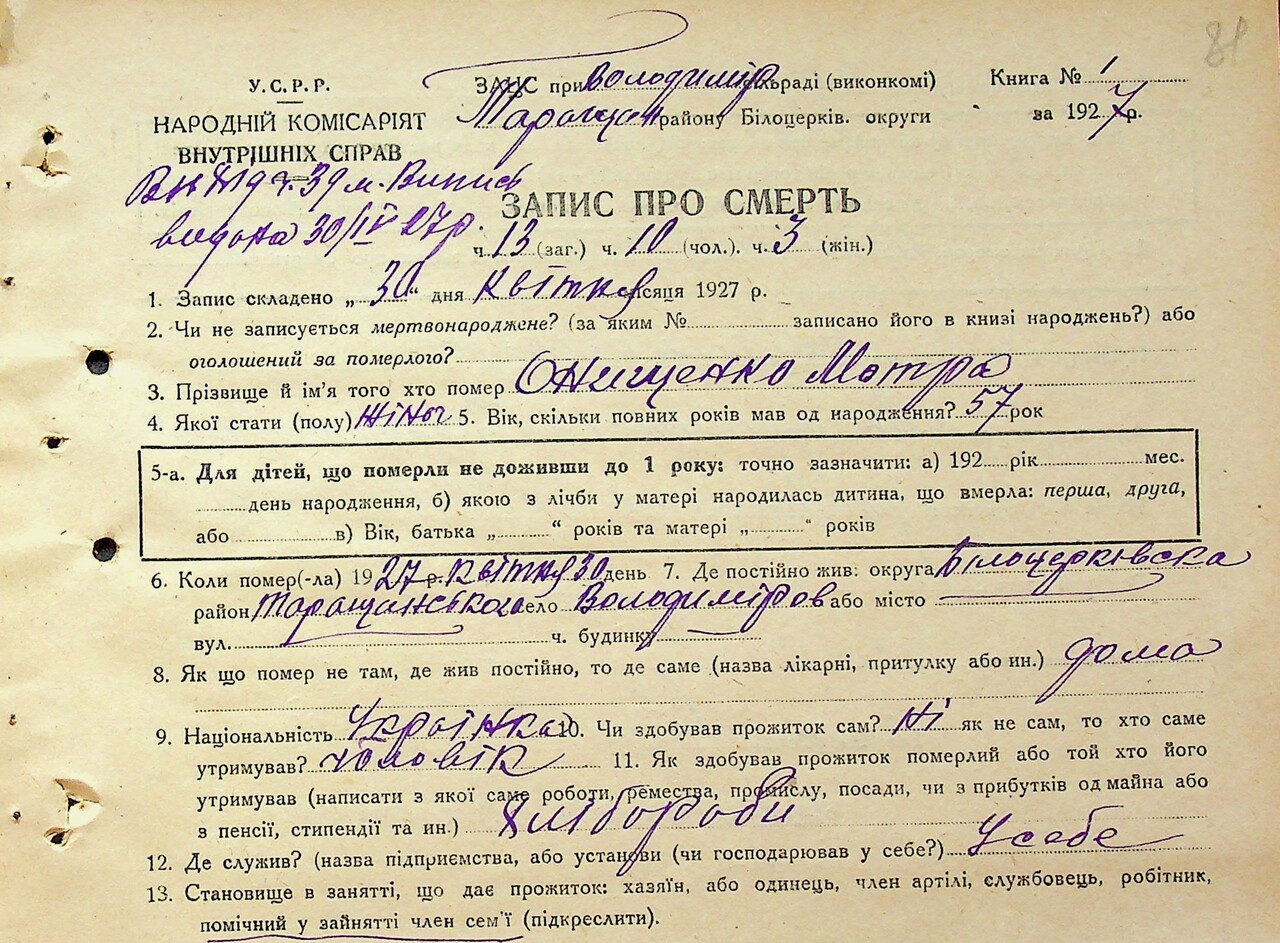 81
У.С.Р.Р.
НАРОДНІЙ КОМІСАРІЯТ
ВНУТРІШНІХ СПРАВ
ЗАГС при Володимір сільраді (виконкомі)
Таращан району Білоцерків. округи
Книга № 1
за 1927 р.
ч. 39 м. Випис
видана 30/IV 27р.
ЗАПИС ПРО СМЕРТЬ
ч. 13 (заг.) ч. 10 (чол.). ч. 3 (жін.)
1. Запис складено „ 30 “ дня Квітня місяця 1927 р.
2. Чи не записується мертвонароджене? (за яким № записано його в книзі народжень?) або
оголошений за померлого?
3. Прізвище й ім'я того хто помер Онищенко Мотра
4. Якої стати (полу) жіноч 5. Вік, скільки повних років мав од народження? 57 рок
5-а. Для дітей, що померли не доживши до 1 року: точно зазначити: а) 192 рік мес.
день народження, б) якою з лічби у матері народилась дитина, що вмерла: перша, друга,
або в) Вік, батька „ “ років та матері „ “ років
6. Коли помер(-ла) 1927 р. Квітня 30 день 7. Де постійно жив: округа Білоцерківська
район Таращанський село Володиміров або місто
вул. ч. будинку
8. Як що помер не там, де жив постійно, то де саме (назва лікарні, притулку або ин.) дома
9. Національність Українка 10. Чи здобував прожиток сам? Ні як не сам, то хто саме
утримував? чоловік 11. Як здобував прожиток померлий або той хто його
утримував (написати з якої саме роботи, ремества, промислу, посади, чи з прибутків од майна або
з пенсії, стипендії та ин.) Хлібороби
12. Де служив? (назва підприємства, або установи (чи господарював у себе?) У себе
13. Становище в занятті, що дає прожиток: хазяїн, або одинець, член артілі, службовець, робітник,
помічний у зайнятті член сем'ї (підкреслити).